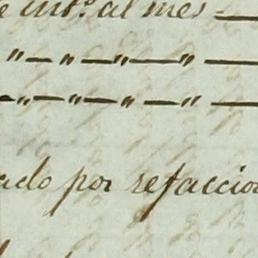 int.º al mes
" — " — " — "
" — " — " — "
ado por refaccio